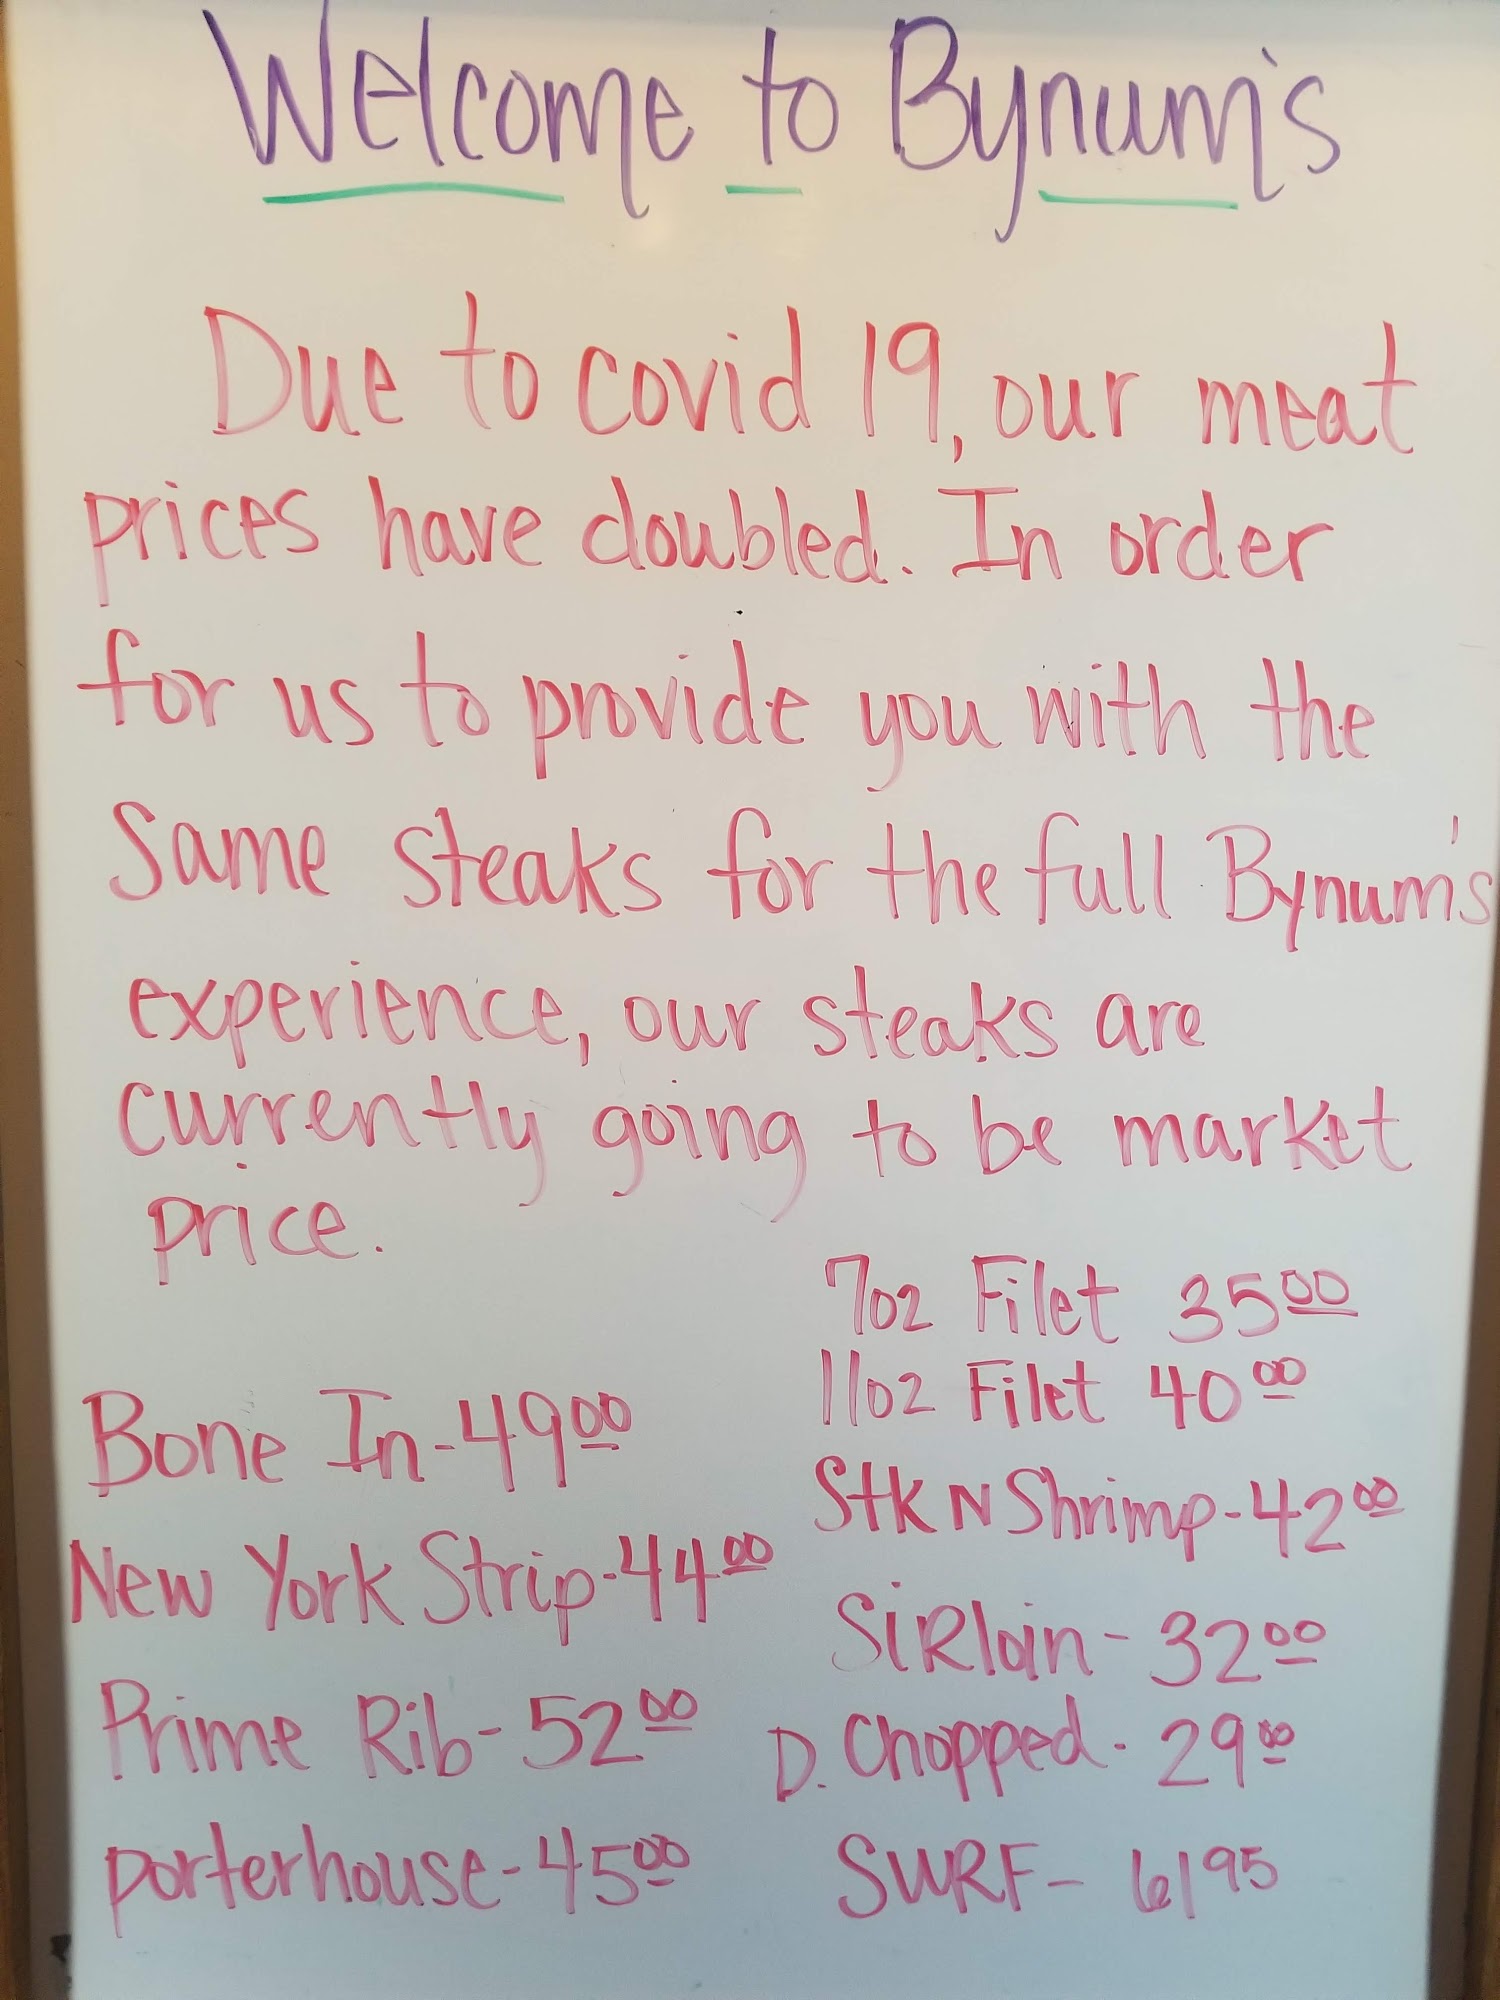 Welcome to Bynum's
Due to covid 19, our meat
prices have doubled. In order
for us to provide you with the
Same steaks for the full Bynum's
experience, our steaks are
currently going to be market
price.
7oz Filet 35.00
11oz Filet 40.00
Bone In-49.00
Stk N Shrimp-42.00
New York Strip-44.00
SiRloin-32.00
Prime Rib-52.00
D. Chopped-29.00
porterhouse-45.00
SURF-61.95